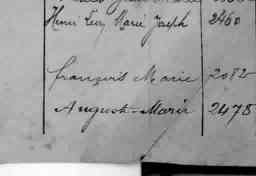 Henri Luz Marie Joseph 2460
François Marie 2082
Auguste-Marie 2478